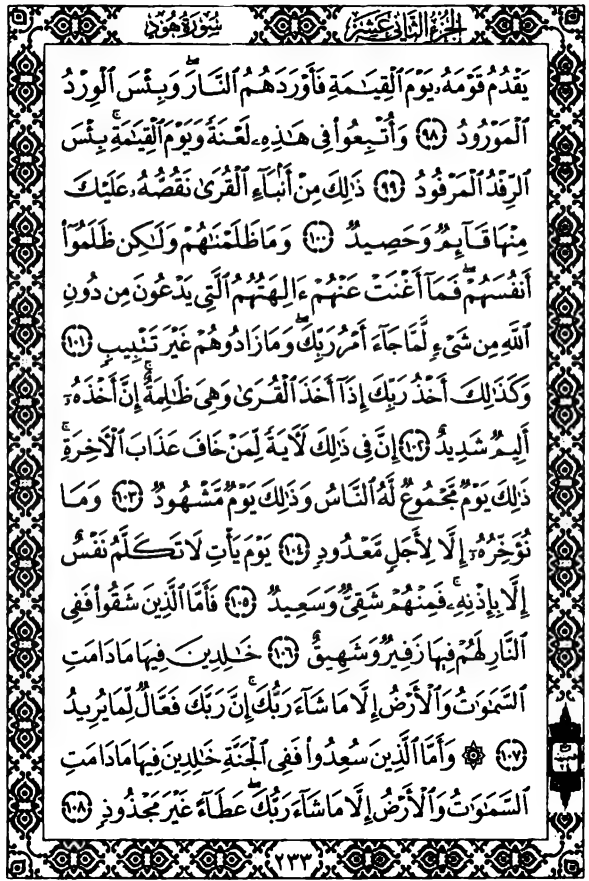 الجزء الثاني عشر
سورة هود
يَقْدُمُ قَوْمَهُۥ يَوْمَ ٱلْقِيَـٰمَةِ فَأَوْرَدَهُمُ ٱلنَّارَ ۖ وَبِئْسَ ٱلْوِرْدُ
ٱلْمَوْرُودُ ٩٨ وَأُتْبِعُوا۟ فِى هَـٰذِهِۦ لَعْنَةً وَيَوْمَ ٱلْقِيَـٰمَةِ ۚ بِئْسَ
ٱلرِّفْدُ ٱلْمَرْفُودُ ٩٩ ذَٰلِكَ مِنْ أَنۢبَآءِ ٱلْقُرَىٰ نَقُصُّهُۥ عَلَيْكَ
مِنْهَا قَآئِمٌ وَحَصِيدٌ ١٠٠ وَمَا ظَلَمْنَـٰهُمْ وَلَـٰكِن ظَلَمُوٓا۟
أَنفُسَهُمْ ۖ فَمَآ أَغْنَتْ عَنْهُمْ ءَالِهَتُهُمُ ٱلَّتِى يَدْعُونَ مِن دُونِ
ٱللَّهِ مِن شَىْءٍ لَّمَّا جَآءَ أَمْرُ رَبِّكَ ۖ وَمَا زَادُوهُمْ غَيْرَ تَتْبِيبٍ ١٠١
وَكَذَٰلِكَ أَخْذُ رَبِّكَ إِذَآ أَخَذَ ٱلْقُرَىٰ وَهِىَ ظَـٰلِمَةٌ ۚ إِنَّ أَخْذَهُۥٓ
أَلِيمٌ شَدِيدٌ ١٠٢ إِنَّ فِى ذَٰلِكَ لَـَٔايَةً لِّمَنْ خَافَ عَذَابَ ٱلْـَٔاخِرَةِ ۚ
ذَٰلِكَ يَوْمٌ مَّجْمُوعٌ لَّهُ ٱلنَّاسُ وَذَٰلِكَ يَوْمٌ مَّشْهُودٌ ١٠٣ وَمَا
نُؤَخِّرُهُۥٓ إِلَّا لِأَجَلٍ مَّعْدُودٍ ١٠٤ يَوْمَ يَأْتِ لَا تَكَلَّمُ نَفْسٌ
إِلَّا بِإِذْنِهِۦ ۚ فَمِنْهُمْ شَقِىٌّ وَسَعِيدٌ ١٠٥ فَأَمَّا ٱلَّذِينَ شَقُوا۟ فَفِى
ٱلنَّارِ لَهُمْ فِيهَا زَفِيرٌ وَشَهِيقٌ ١٠٦ خَـٰلِدِينَ فِيهَا مَا دَامَتِ
ٱلسَّمَـٰوَٰتُ وَٱلْأَرْضُ إِلَّا مَا شَآءَ رَبُّكَ ۚ إِنَّ رَبَّكَ فَعَّالٌ لِّمَا يُرِيدُ
١٠٧ ۞ وَأَمَّا ٱلَّذِينَ سُعِدُوا۟ فَفِى ٱلْجَنَّةِ خَـٰلِدِينَ فِيهَا مَا دَامَتِ
ٱلسَّمَـٰوَٰتُ وَٱلْأَرْضُ إِلَّا مَا شَآءَ رَبُّكَ ۖ عَطَآءً غَيْرَ مَجْذُوذٍ ١٠٨
٢٣٣